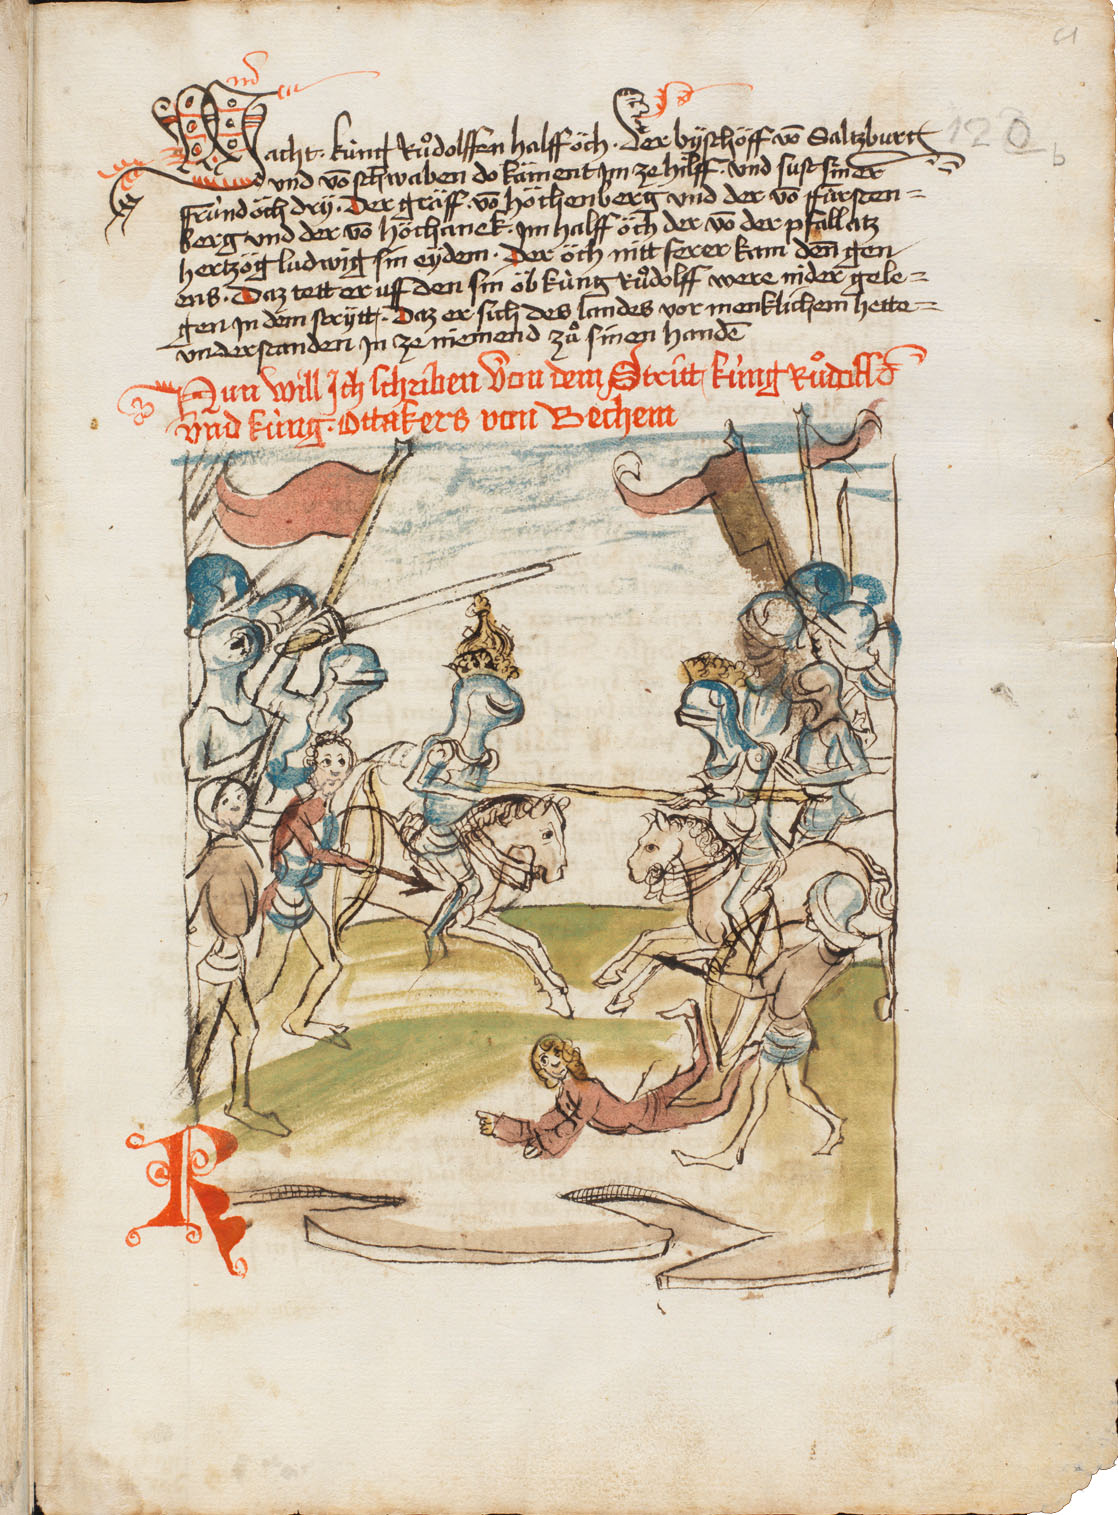 61
120
b
Macht · kúng Růdolffen halff öch · der byschöff vō Saltzburg
vnd vō schwaben do käment im ze hilff · vnd sust siner
fründ öch dry · Der gräff · vō höchenberg vnd der vō fürsten=
berg vnd der vō höchanek · im halff öch der vō der pfallatz
hertzög ludwig sin eydem · Der öch nitt ferer kam deñ gen
ens · Daz tett er uff den sin öb kúng Růdolff were nider gele=
gen in dem strytt · Daz er sich des landes vor menklichem hette=
vnderstanden in ze niemend zů sinen handē
Nun will ich schriben von dem Stritt kúng Růdolffs
vnd kúng · Ottakers von Bechem
R